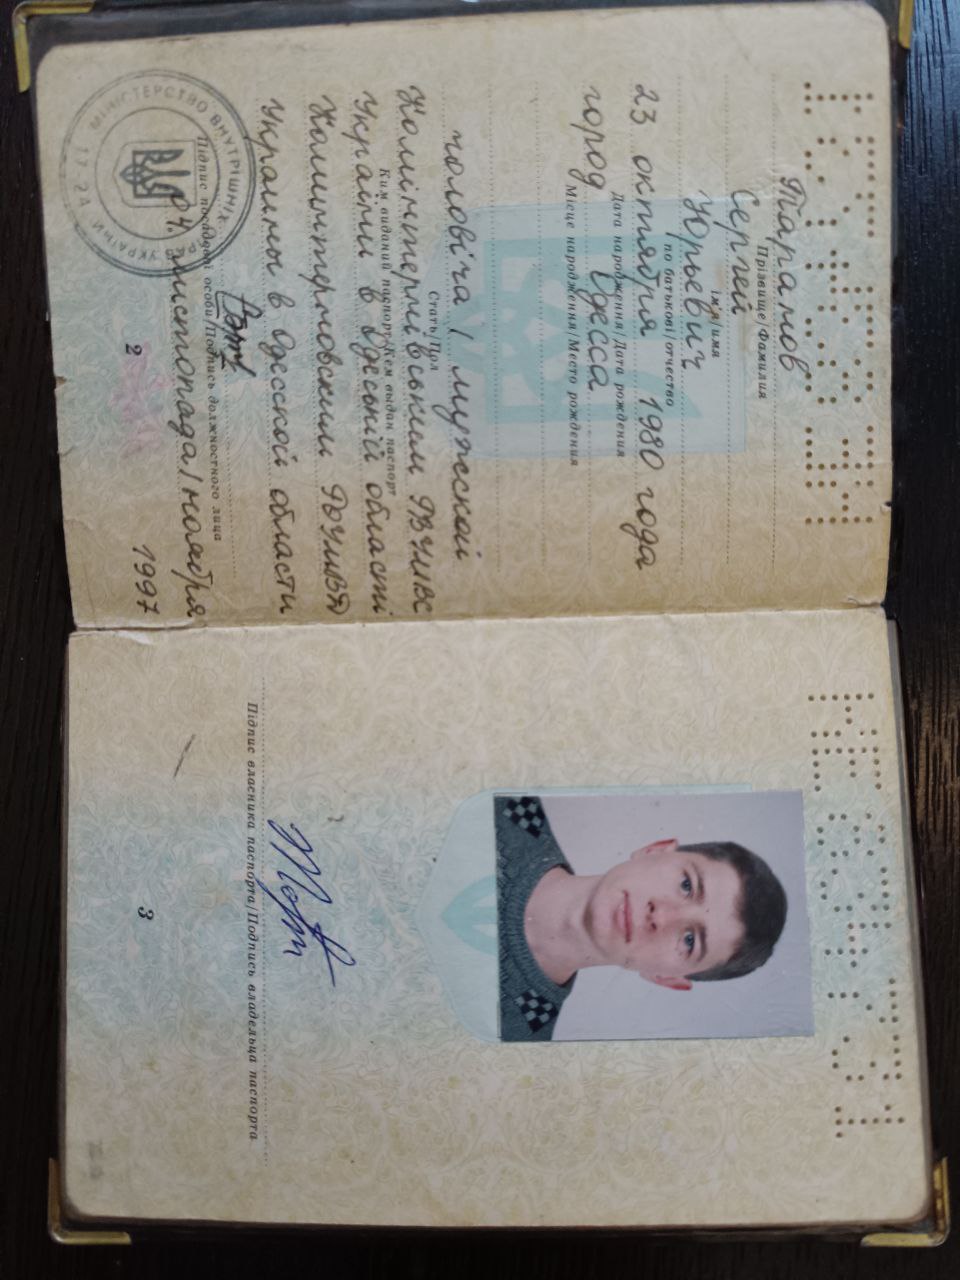 Таранов
Прізвище/Фамилия
Сергей
ім'я/имя
Юрьевич
по батькові/отчество
23 октября 1980 года
Дата народження/Дата рождения
город Одесса
Місце народження/Место рождения
чоловіча / мужской
Стать/Пол
Комінтернівським РВУМВС
Ким виданий паспорт/Кем выдан паспорт
України в Одеській області
Коминтерновским РОУМВД
Украины в Одесской области
Підпис посадової особи/Подпись должностного лица
04. листопада / ноября
1997
МІНІСТЕРСТВО ВНУТРІШНІХ СПРАВ УКРАЇНИ
17-24
2
КЕ 834731
Підпис власника паспорта/Подпись владельца паспорта
3